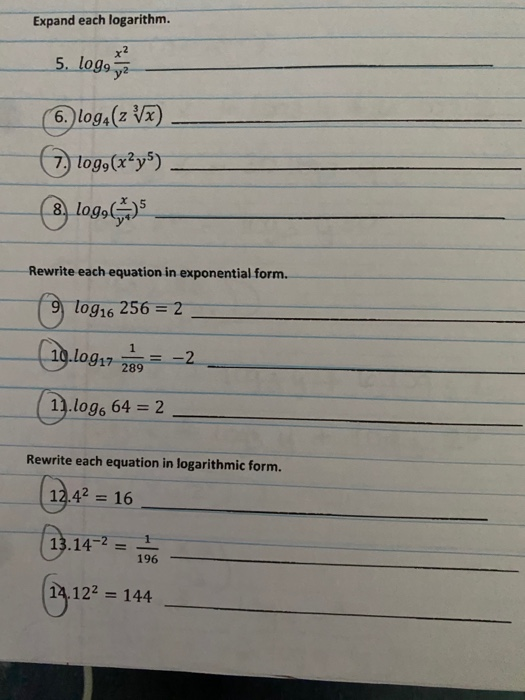 Expand each logarithm.
5. log₉ x²/y² ____
6. log₄(z ∛x) ____
7. log₉(x²y⁵) ____
8. log₉(x/y⁴)⁵ ____
Rewrite each equation in exponential form.
9 log₁₆ 256 = 2 ____
10. log₁₇ 1/289 = −2 ____
11. log₆ 64 = 2 ____
Rewrite each equation in logarithmic form.
12. 4² = 16 ____
13. 14⁻² = 1/196 ____
14. 12² = 144 ____